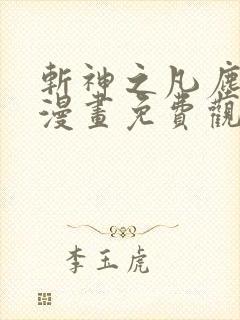 斬神之凡塵
漫畫免費觀
李玉虎